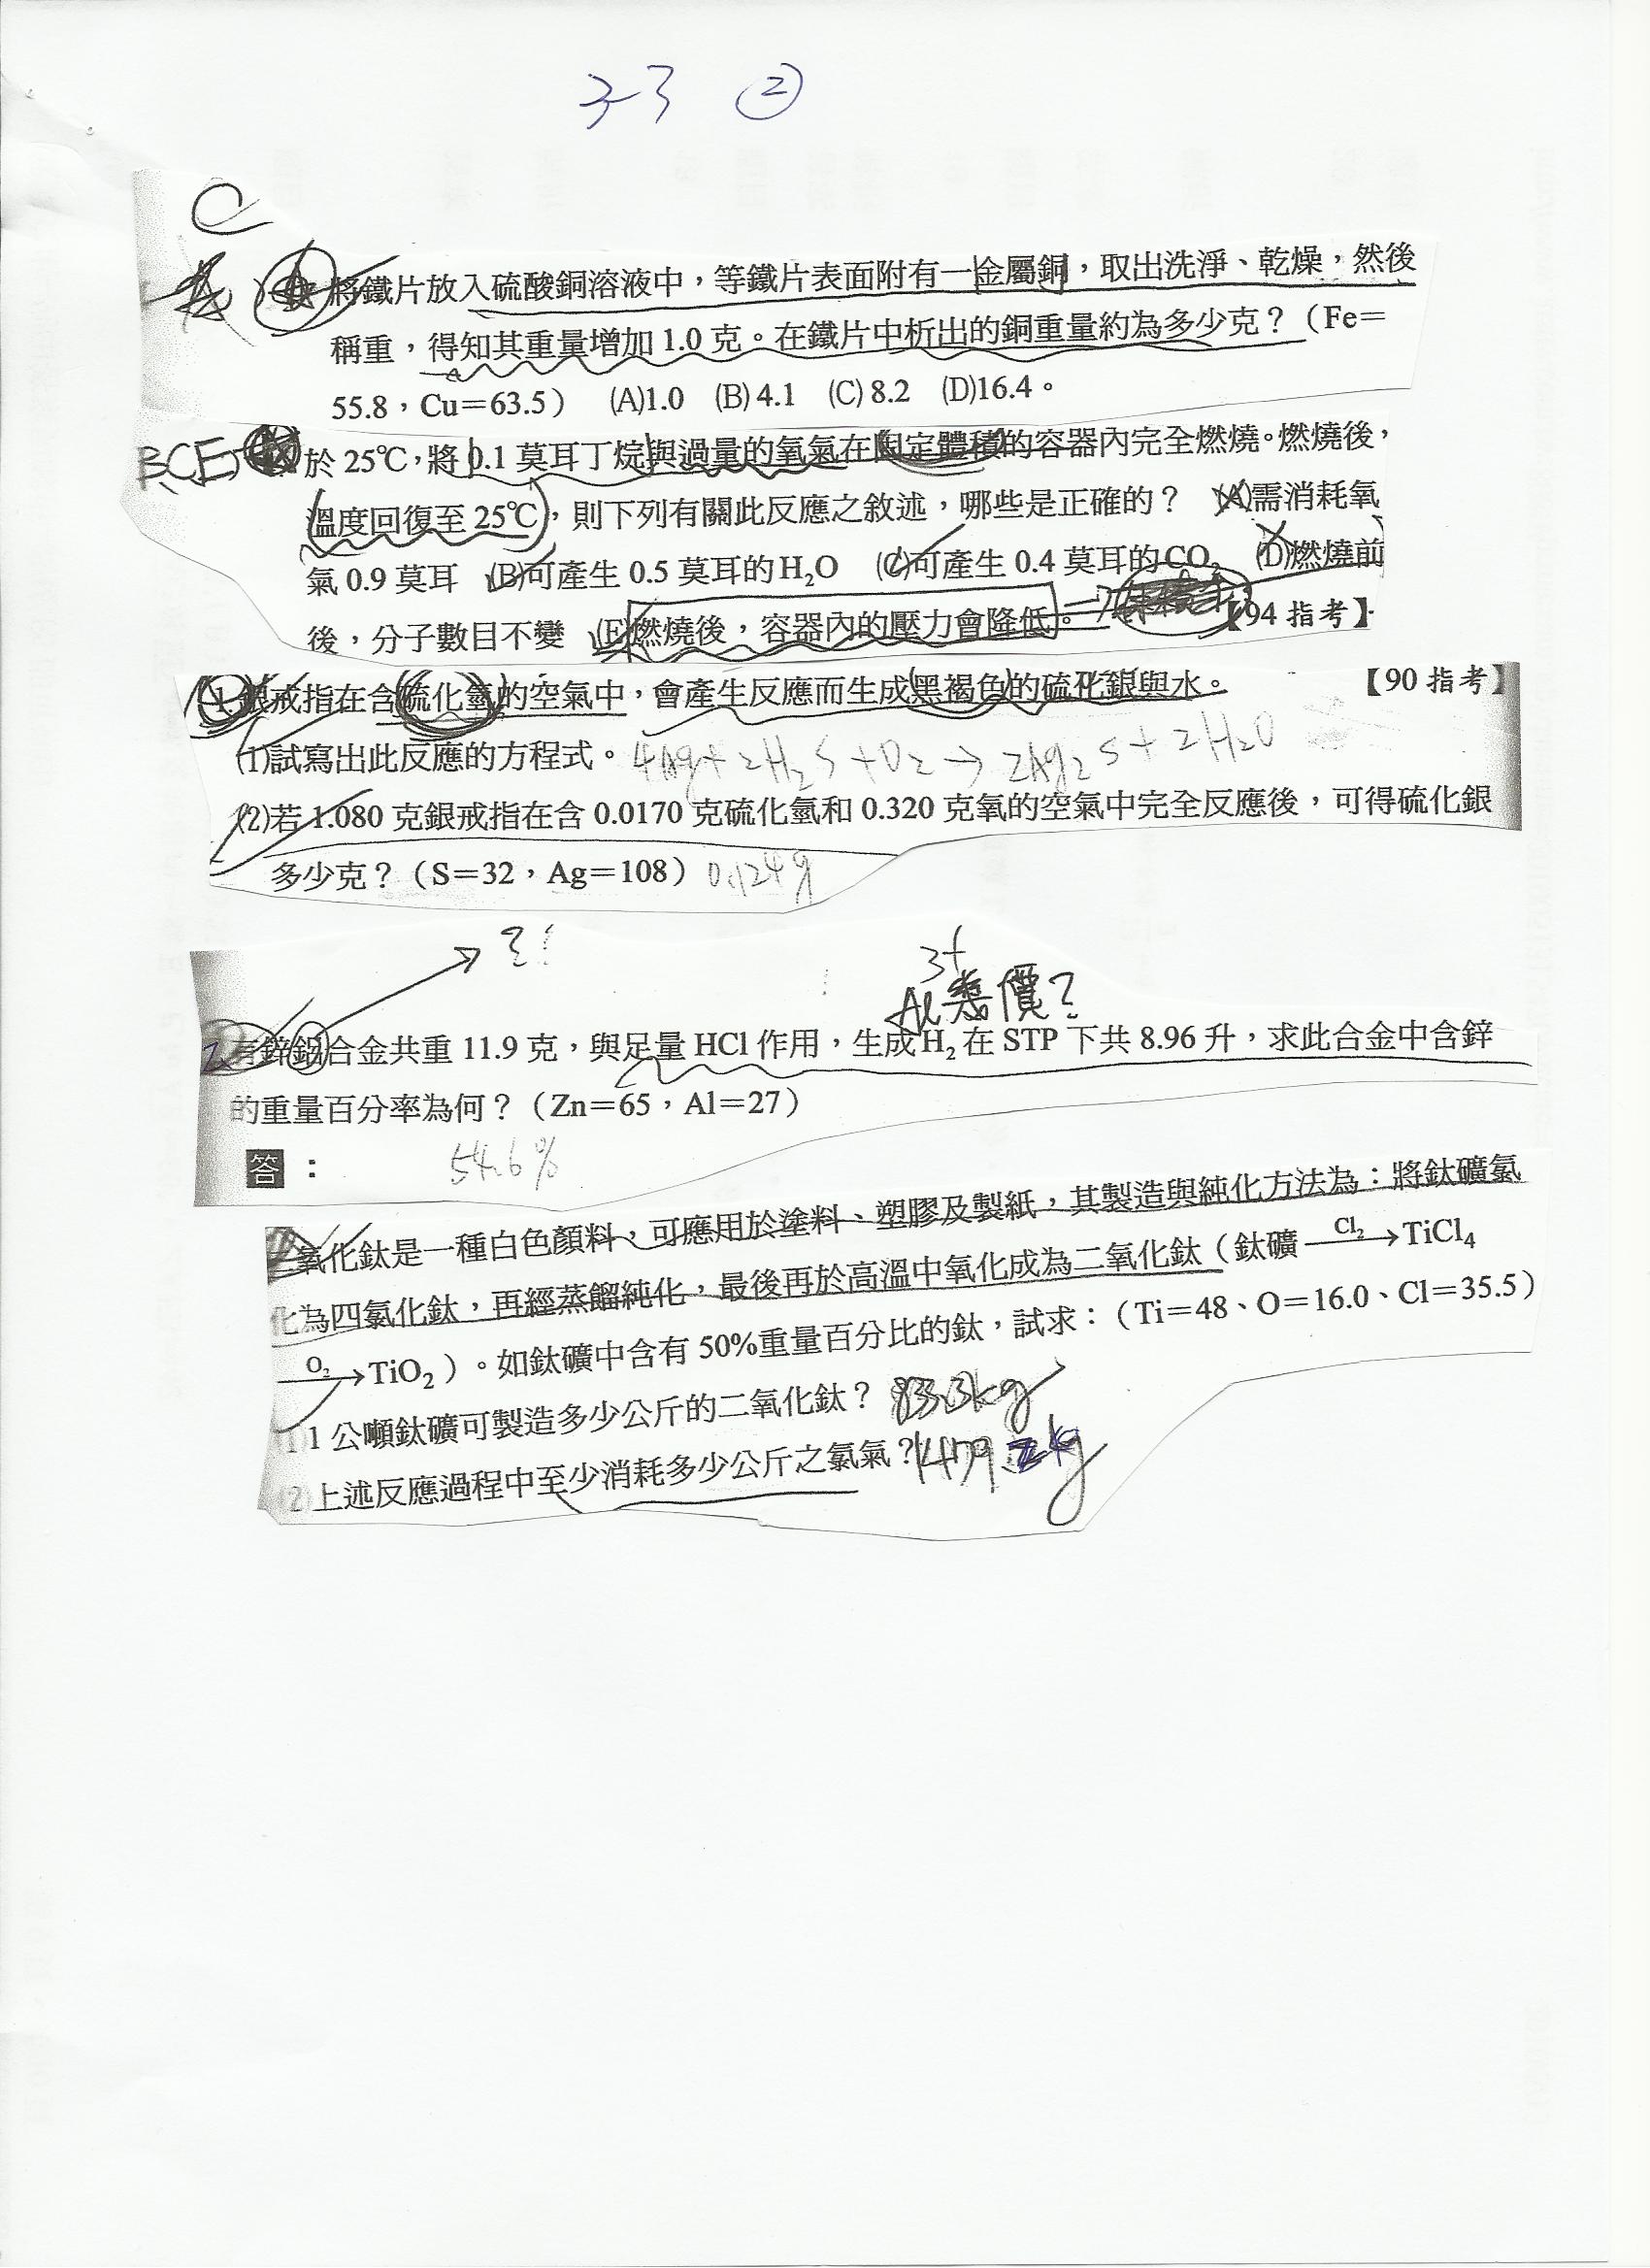 3-3 ②
C
將鐵片放入硫酸銅溶液中，等鐵片表面附有一金屬銅，取出洗淨、乾燥，然後
稱重，得知其重量增加 1.0 克。在鐵片中析出的銅重量約為多少克？（Fe＝
55.8，Cu＝63.5） (A)1.0 (B) 4.1 (C) 8.2 (D)16.4。
BCE 於 25℃，將 0.1 莫耳丁烷與過量的氧氣在固定體積的容器內完全燃燒。燃燒後，
溫度回復至 25℃，則下列有關此反應之敘述，哪些是正確的？ (A)需消耗氧
氣 0.9 莫耳 (B)可產生 0.5 莫耳的H₂O (C)可產生 0.4 莫耳的CO₂ (D)燃燒前
後，分子數目不變 (E)燃燒後，容器內的壓力會降低。 【94 指考】
1.銀戒指在含硫化氫的空氣中，會產生反應而生成黑褐色的硫化銀與水。 【90 指考】
(1)試寫出此反應的方程式。 4Ag+2H₂S+O₂→2Ag₂S+2H₂O
(2)若 1.080 克銀戒指在含 0.0170 克硫化氫和 0.320 克氧的空氣中完全反應後，可得硫化銀
多少克？（S＝32，Ag＝108） 0.124g
?!
3+
Al幾價?
2 有鋅鋁合金共重 11.9 克，與足量 HCl 作用，生成 H₂ 在 STP 下共 8.96 升，求此合金中含鋅
的重量百分率為何？（Zn＝65，Al＝27）
答： 54.6%
二氧化鈦是一種白色顏料，可應用於塗料、塑膠及製紙，其製造與純化方法為：將鈦礦氯
化為四氯化鈦，再經蒸餾純化，最後再於高溫中氧化成為二氧化鈦（鈦礦 Cl₂→ TiCl₄
O₂→ TiO₂）。如鈦礦中含有 50%重量百分比的鈦，試求：（Ti＝48、O＝16.0、Cl＝35.5）
(1) 1 公噸鈦礦可製造多少公斤的二氧化鈦？ 833.3kg
(2)上述反應過程中至少消耗多少公斤之氯氣？1479.2kg